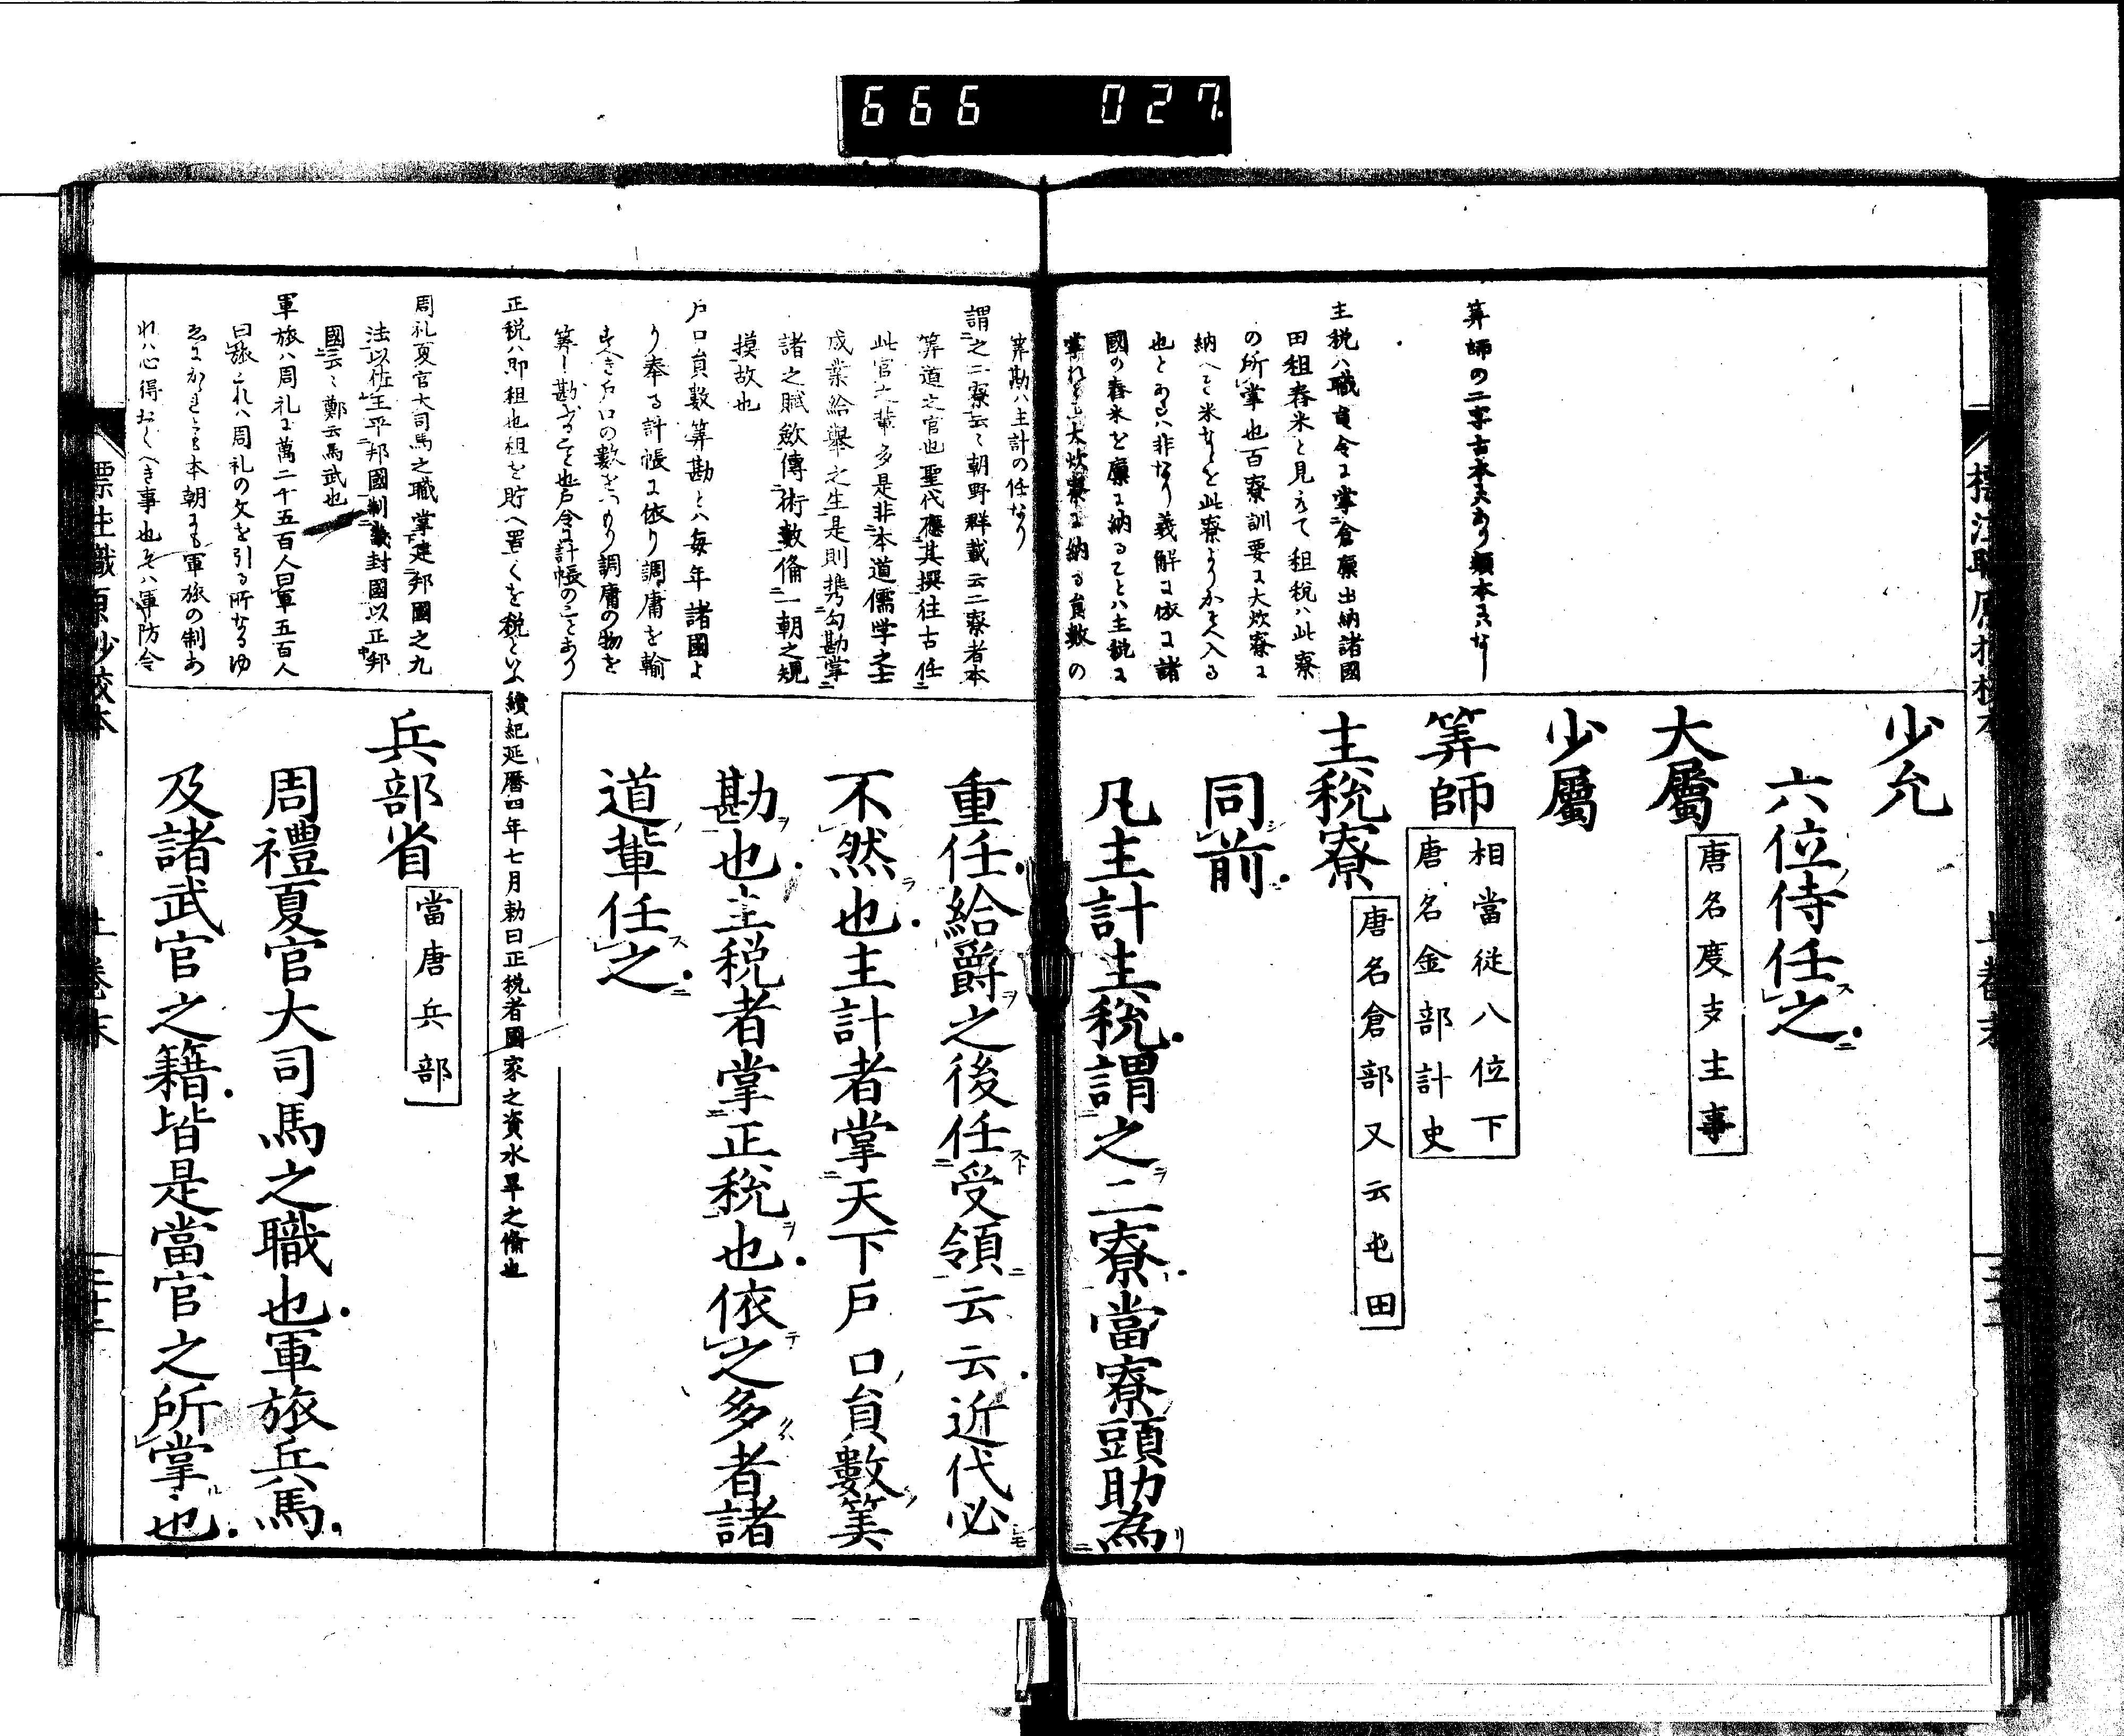 666 027
筭師の二字古本ニあり類本ニなし
主税ハ職員令に掌倉廩出納諸國
田租舂米と見えて租税ハ此寮
の所掌也百寮訓要に大炊寮に
納へき米なとを此寮よりかそへ入る
也とあるハ非なり義解に依に諸
國の舂米を廩に納ることハ主税に
大炊寮に納る員数の
筭勘ハ主計の任なり
少允
六位侍任之
大屬
唐名度支主事
少屬
筭師
相當従八位下
唐名金部計史
主税寮
唐名倉部又云屯田
同前
凡主計主税謂之二寮當寮頭助為
謂之二寮云々朝野群載云二寮者本
筭道之官也聖代應其撰往古任
此官之輩多是非本道儒学之士
成業給舉之生是則携勾勘掌
諸之賦斂傳術数俻一朝之規
摸故也
戸口員数筭勘とハ毎年諸國よ
り奉る計帳に依り調庸を輸
すへき戸口の数をつもり調庸の物を
筭し勘ふること也戸令に計帳のことあり
正税ハ即租也租を貯へ置くを税といふ續紀延暦四年七月勅曰正税者國家之資水旱之俻也
周礼夏官大司馬之職掌建邦國之九
法以佐王平邦國制畿封國以正邦
國云々鄭云馬武也
軍旅ハ周礼に萬二千五百人曰軍五百人
曰旅これハ周礼の文を引る所なるゆ
ゑにかゝれとも本朝にも軍旅の制あ
れハ心得おくへき事也そハ軍防令
重任給爵之後任受領云云近代必
不然也主計者掌天下戸口員數筭
勘也主税者掌正税也依之多者諸
道輩任之
兵部省
當唐兵部
周禮夏官大司馬之職也軍旅兵馬
及諸武官之籍皆是當官之所掌也
標注職原抄校本
上卷末